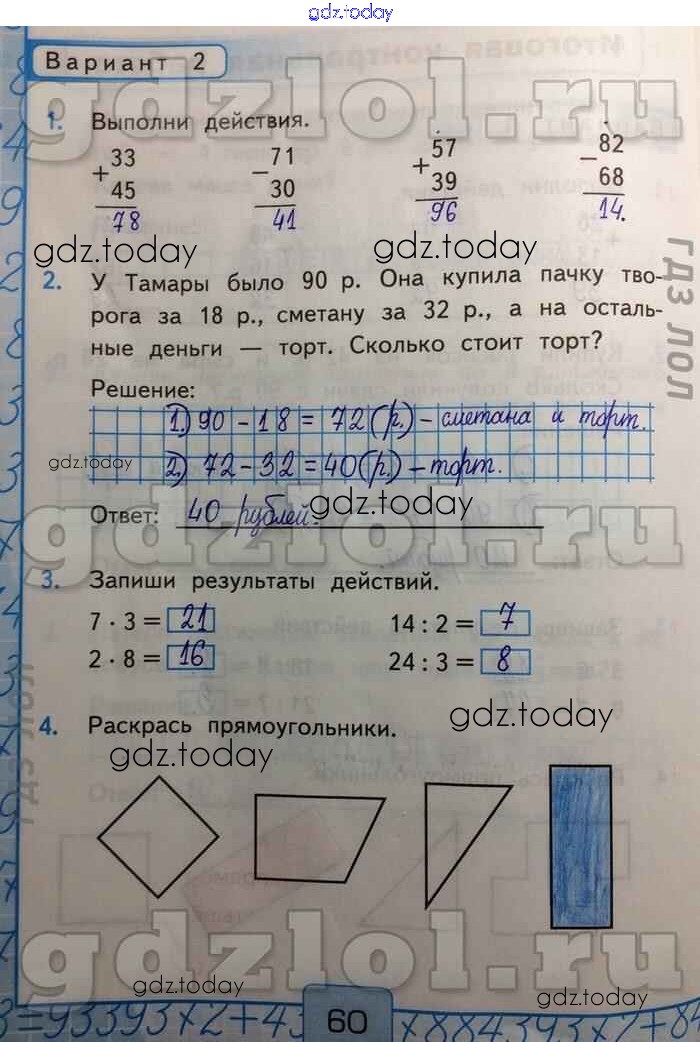 gdz.today
Вариант 2
1. Выполни действия.
+ 33 45 78
− 71 30 41
+ 57 39 96
− 82 68 14.
gdz.today gdz.today
2. У Тамары было 90 р. Она купила пачку тво-
рога за 18 р., сметану за 32 р., а на осталь-
ные деньги — торт. Сколько стоит торт?
Решение:
1.) 90 - 18 = 72 (р.) - сметана и торт.
gdz.today
2.) 72 - 32 = 40 (р.) - торт.
gdz.today
Ответ: 40 рублей.
gdzlol.ru
3. Запиши результаты действий.
7 · 3 = 21 14 : 2 = 7
2 · 8 = 16 24 : 3 = 8
gdz.today
4. Раскрась прямоугольники.
gdz.today
gdzlol.ru
gdz.today gdz.today
3=93393×2+43 60 ×884393×2+84
gdzlol.ru
гдз лол
гдз лол